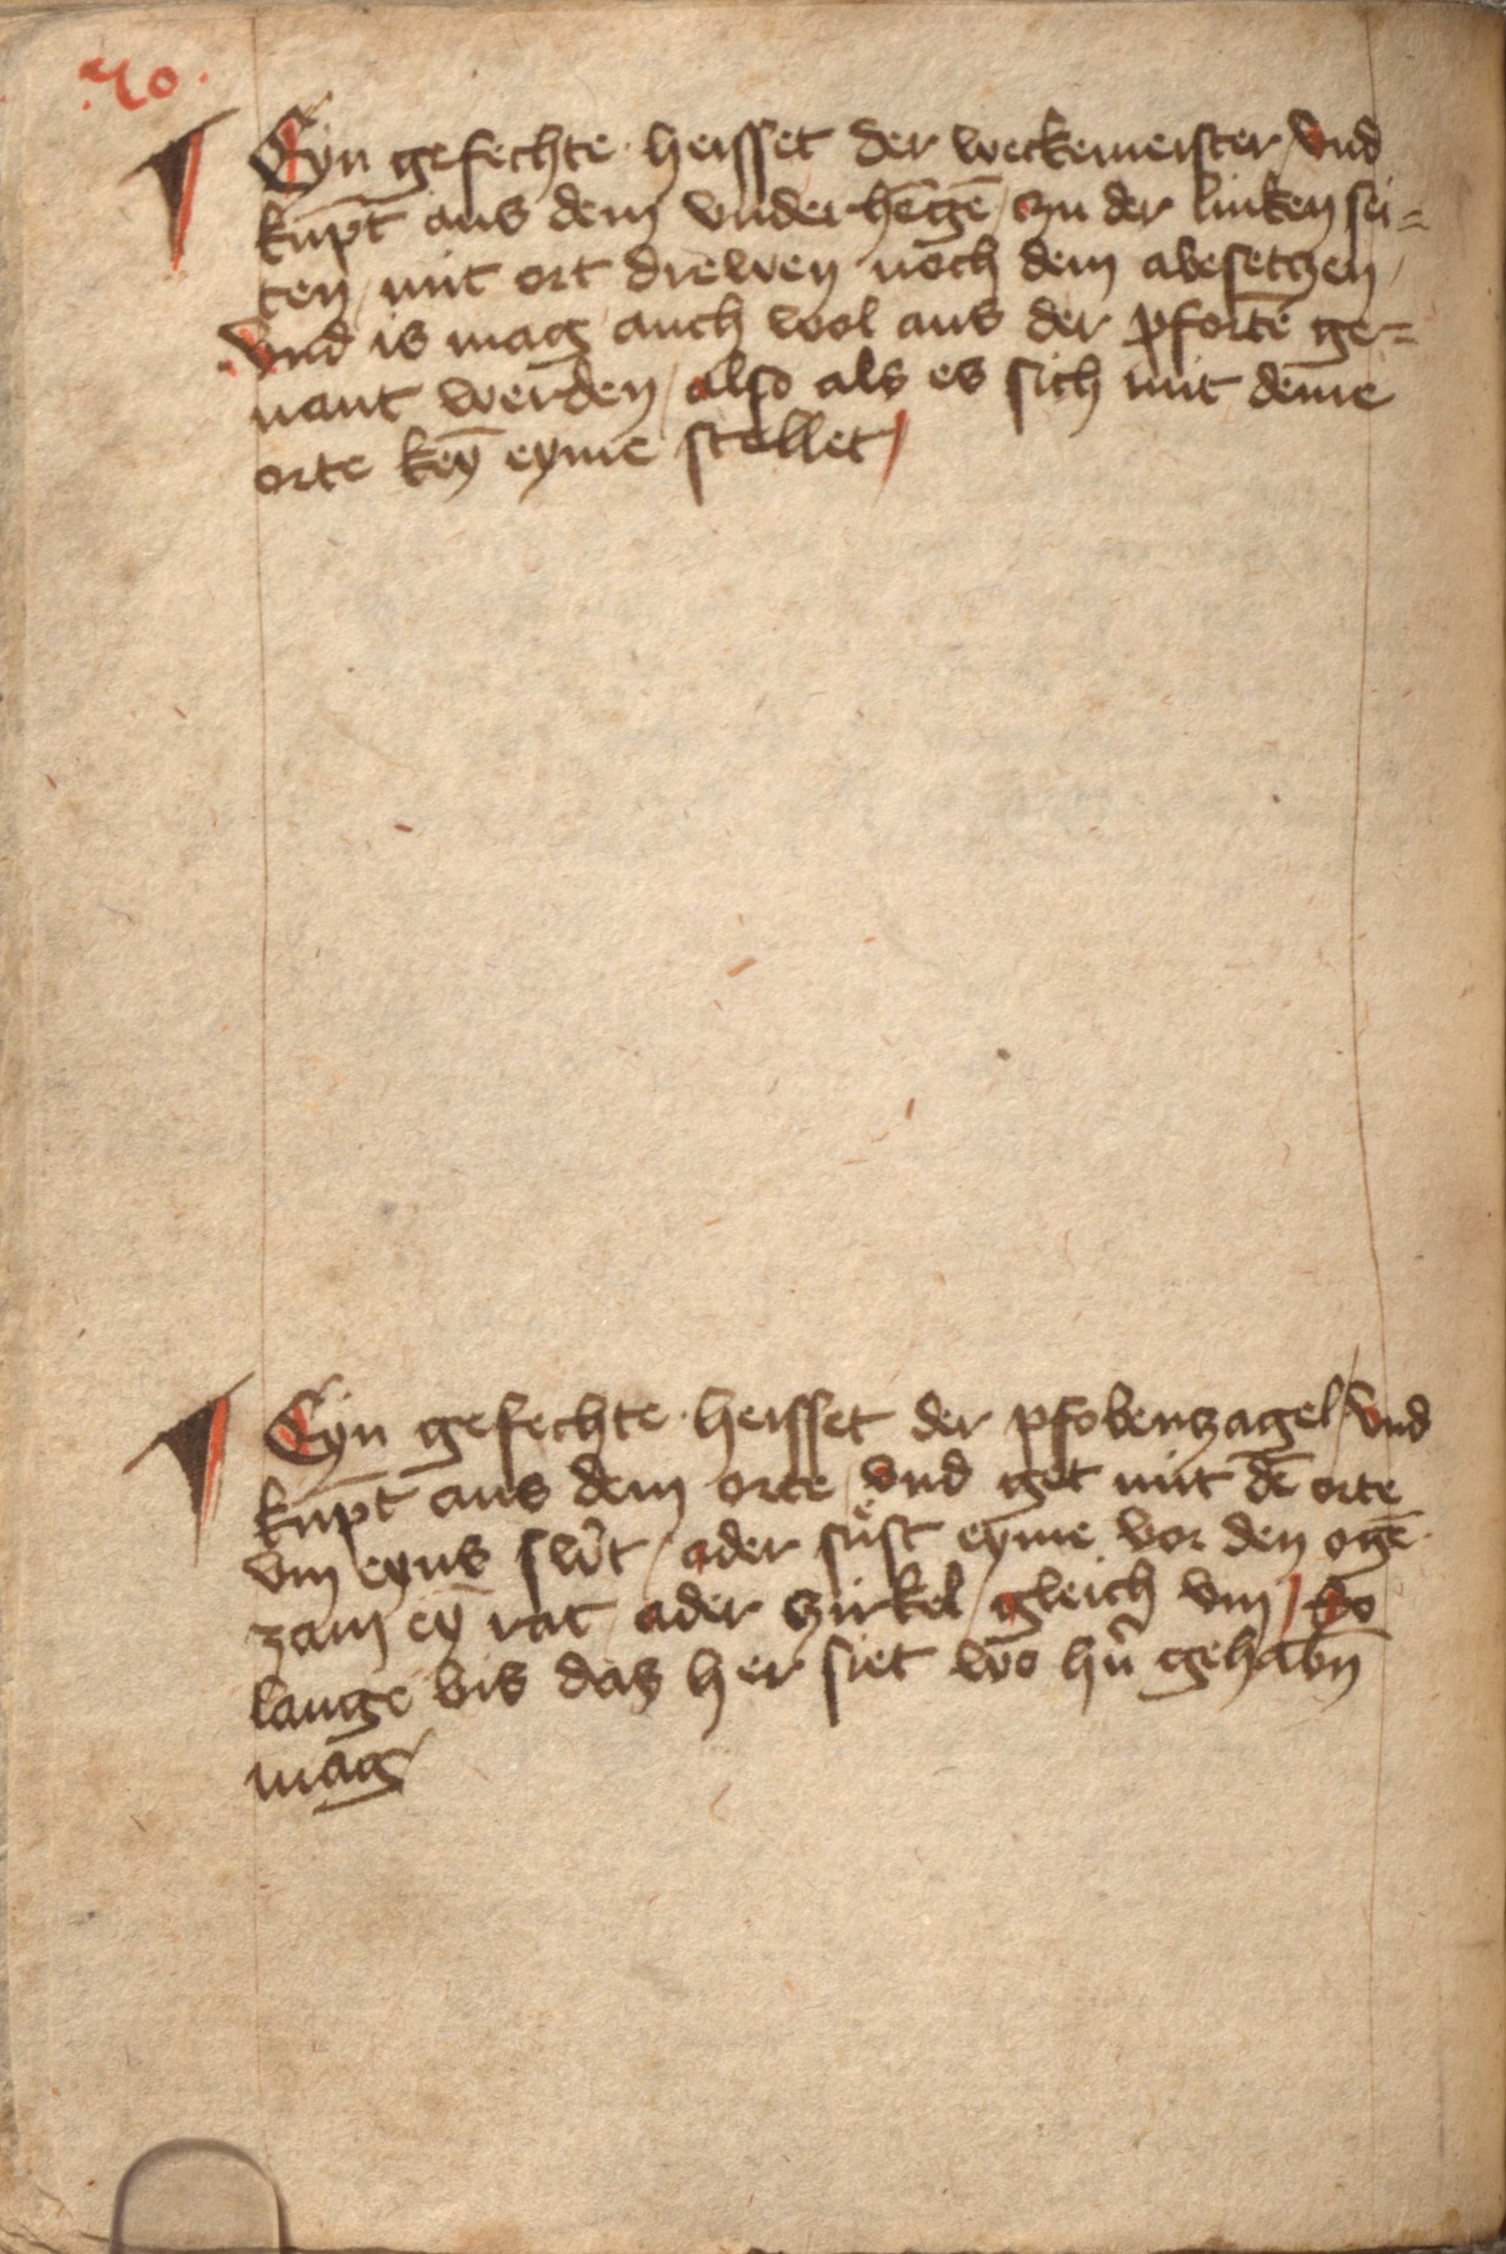 .70.
¶ Eyn gefechte · heisset der weckemeister / vnd
kūpt aus dem vnderhēgē / czu der linken sei=
ten / mit ort drewen noch dem abesetczen /
Vnd is mag auch wol aus der pfortē ge=
nant werden / also als es sich mit deme
orte keȳ eyme stellet /
¶ Eyn gefechte · heisset der pfobenczagel / vnd
kūpt aus dem orte / vnd get mit dē orte
vm eyns sw̓t / ader suͤst eyme vor den ogē
zam eȳ rat / ader czirkel / gleich vm / So
lange bis das her siet wo hn̓ gehabn̄
mag